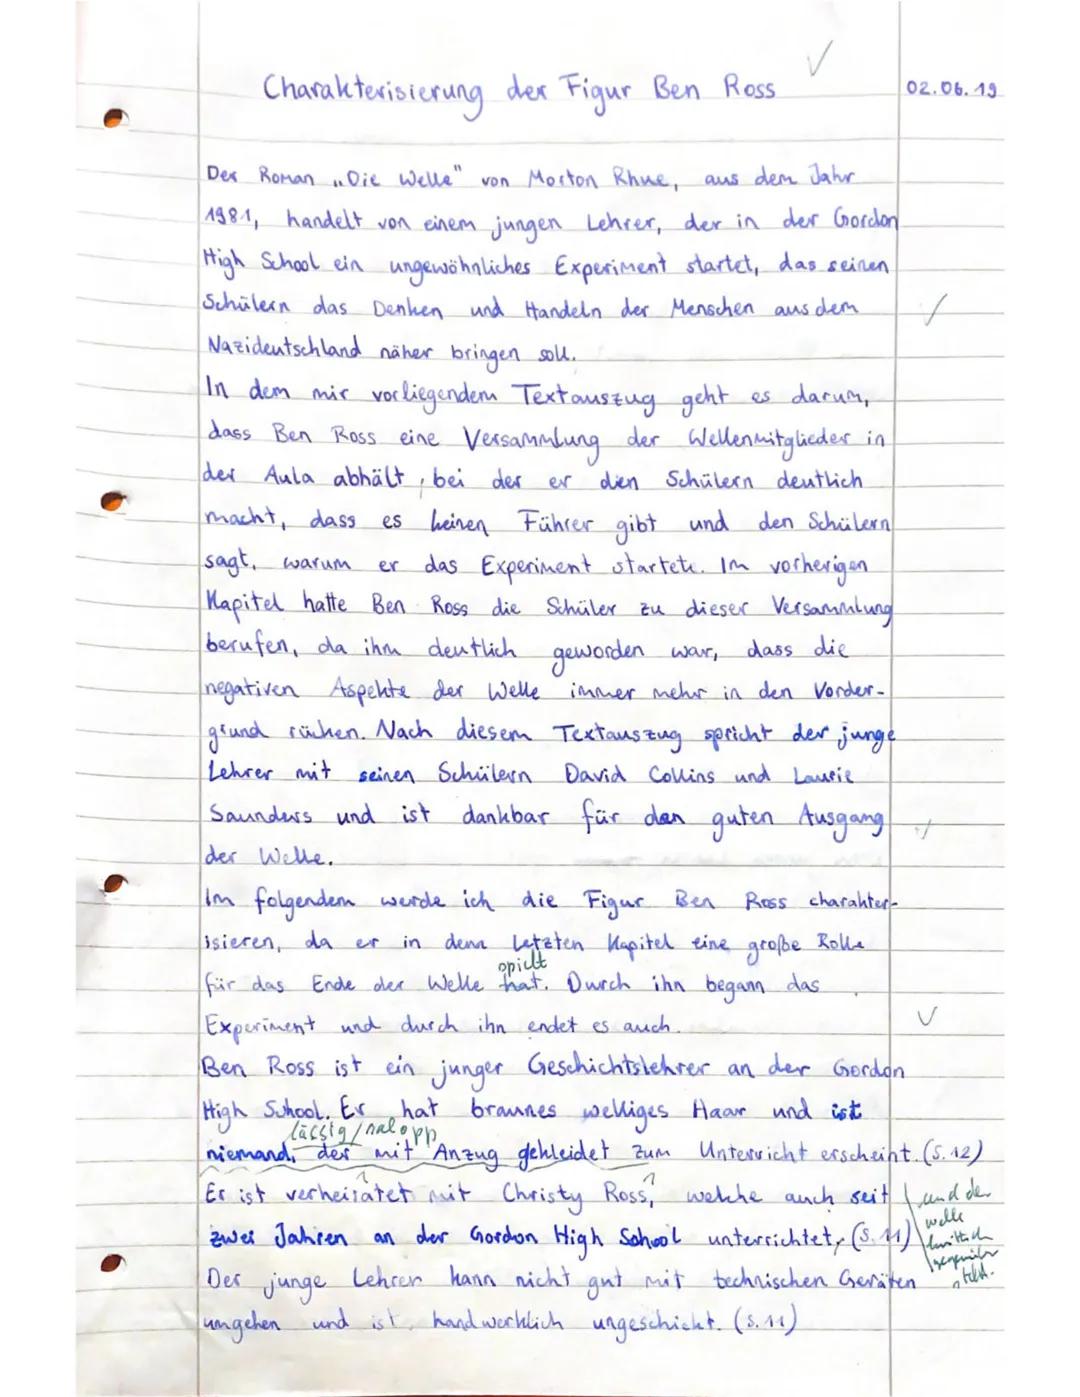 Charakterisierung der Figur Ben Ross
02.06.19
Der Roman „Die Welle" von Morton Rhue, aus dem Jahr
1981, handelt von einem jungen Lehrer, der in der Gordon
High School ein ungewöhnliches Experiment startet, das seinen
Schülern das Denken und Handeln der Menschen aus dem
Nazideutschland näher bringen soll.
In dem mir vorliegendem Textauszug geht es darum,
dass Ben Ross eine Versammlung der Wellenmitglieder in
der Aula abhält, bei der er den Schülern deutlich
macht, dass es keinen Führer gibt und den Schülern
sagt, warum er das Experiment startete. Im vorherigen
Kapitel hatte Ben Ross die Schüler zu dieser Versammlung
berufen, da ihm deutlich geworden war, dass die
negativen Aspekte der Welle immer mehr in den Vorder-
grund rücken. Nach diesem Textauszug spricht der junge
Lehrer mit seinen Schülern David Collins und Laurie
Saunders und ist dankbar für den guten Ausgang
der Welle.
Im folgendem werde ich die Figur Ben Ross charakter-
isieren, da er in dem letzten Kapitel eine große Rolle
spielt
für das Ende der Welle hat. Durch ihn begann das
Experiment und durch ihn endet es auch.
Ben Ross ist ein junger Geschichtslehrer an der Gordon
High School. Er hat braunes welliges Haar und ist
lässig/salopp
niemand, der mit Anzug gekleidet zum Unterricht erscheint. (S. 12)
Er ist verheiratet mit Christy Ross, welche auch seit
zwei Jahren an der Gordon High School unterrichtet, (S. 11)
und der
Welle
kritisch
gegenüber
steht.
Der junge Lehrer kann nicht gut mit technischen Geräten
umgehen und ist handwerklich ungeschickt. (S. 11)